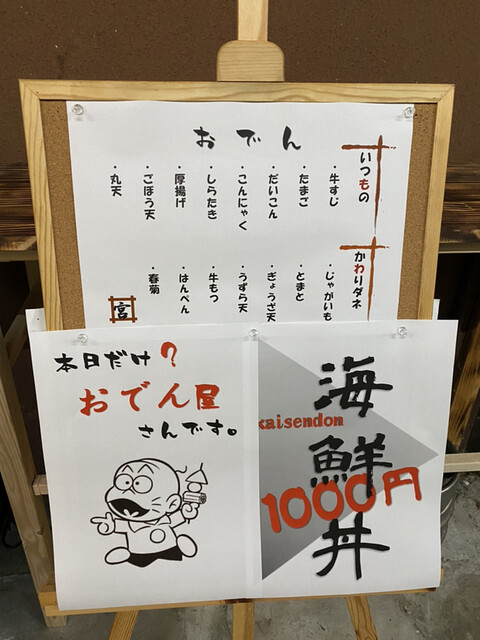 おでん
いつもの
・牛すじ
・たまご
・だいこん
・こんにゃく
・しらたき
・厚揚げ
・ごぼう天
・丸天
かわりダネ
・じゃがいも
・とまと
・ぎょうざ天
・うずら天
・牛もつ
・はんぺん
・春菊
宮
本日だけ?
おでん屋
さんです。
海鮮丼
kaisendon
1000円